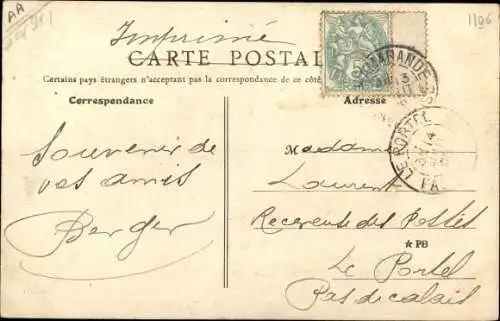 AA
1106
Imprimé
CARTE POSTAL
Certains pays étrangers n'acceptent pas la correspondance de ce côté
Correspondance
Adresse
LE PORTEL
Souvenir de
vos amis
Berger
Madame
Laurent
Receveuse des Postes
★PB
Le Portel
Pas de calais